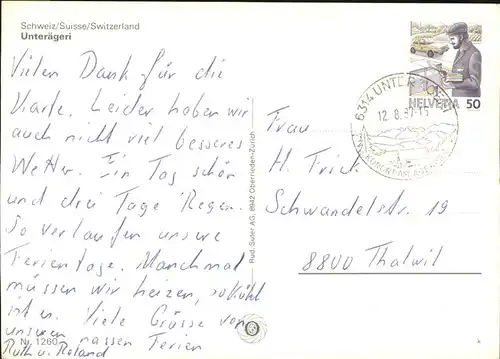 Schweiz/Suisse/Switzerland
Unterägeri
Vielen Dank für die
Karte. Leider haben wir
auch nicht viel besseres
Wetter. Ein Tag schön
und drei Tage Regen.
So verlaufen unsere
Ferientage. Manchmal
müssen wir heizen, so kühl
ist es. Viele Grüsse von
unseren nassen Ferien
Ruth u. Roland
Nr. 1260
Rud. Suter AG, 8942 Oberrieden-Zürich
6314 UNTER
12.8.87-15
HELVETIA 50
Frau
H. Frick
Schwandelstr. 19
8800 Thalwil